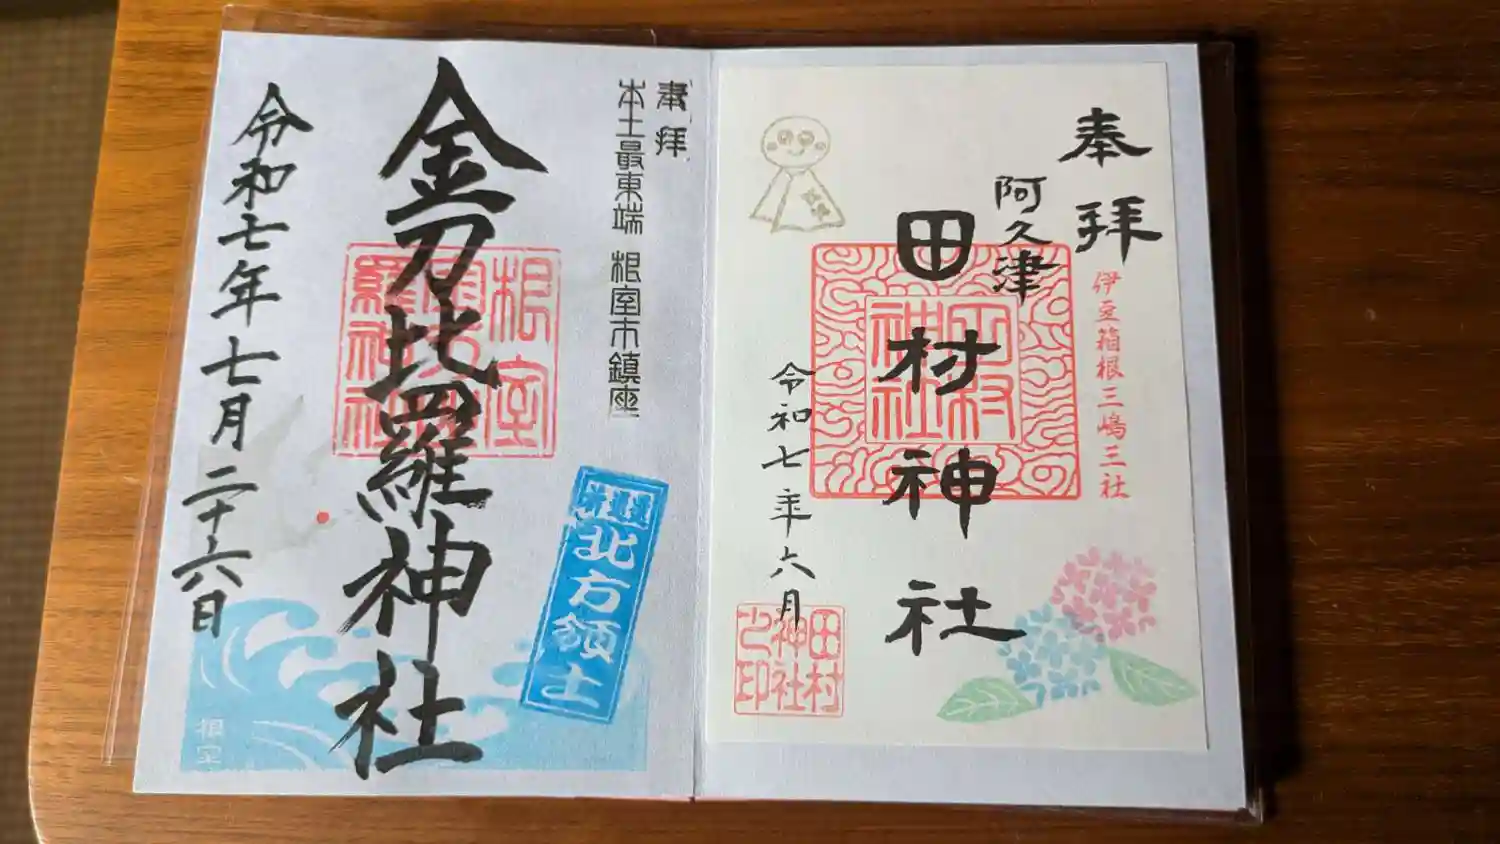 奉拝
伊豆箱根三嶋三社
阿久津
田村神社
令和七年六月
田村
神社
之印
奉拝
本土最東端 根室市鎮座
金刀比羅神社
根室
北方領土
令和七年七月二十六日
根室